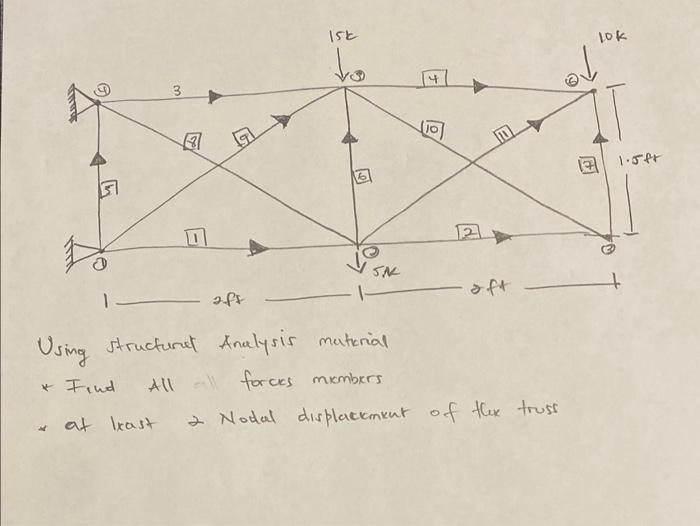 15k
10k
④
3
⑤
4
⑥
8
9
10
11
5
6
7
1.5ft
1
2
①
②
③
5k
2ft
2ft
Using structural Analysis material
* Find All forces members
* at least 2 Nodal displacement of the truss